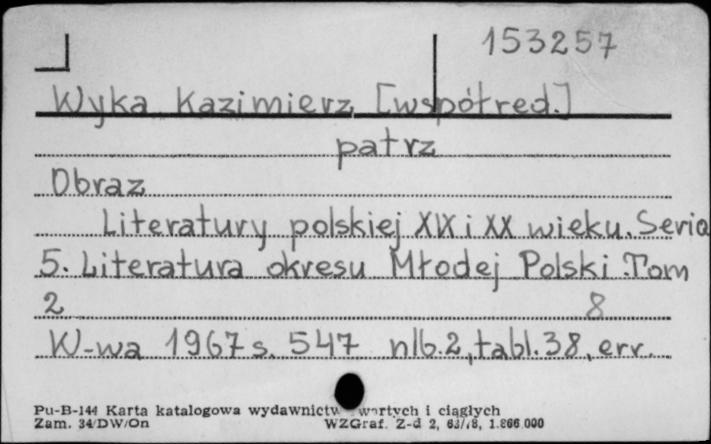 153257
Wyka Kazimierz [współred.]
patrz
Obraz
Literatury polskiej XIX i XX wieku. Seria
5. Literatura okresu Młodej Polski. Tom
2 8
W-wa 1967 s. 547 nlb. 2, tabl. 38, err.
Pu-B-144 Karta katalogowa wydawnictw i ciągłych
Zam. 34/DW/On WZGraf. Z-d 2, 1.866.000